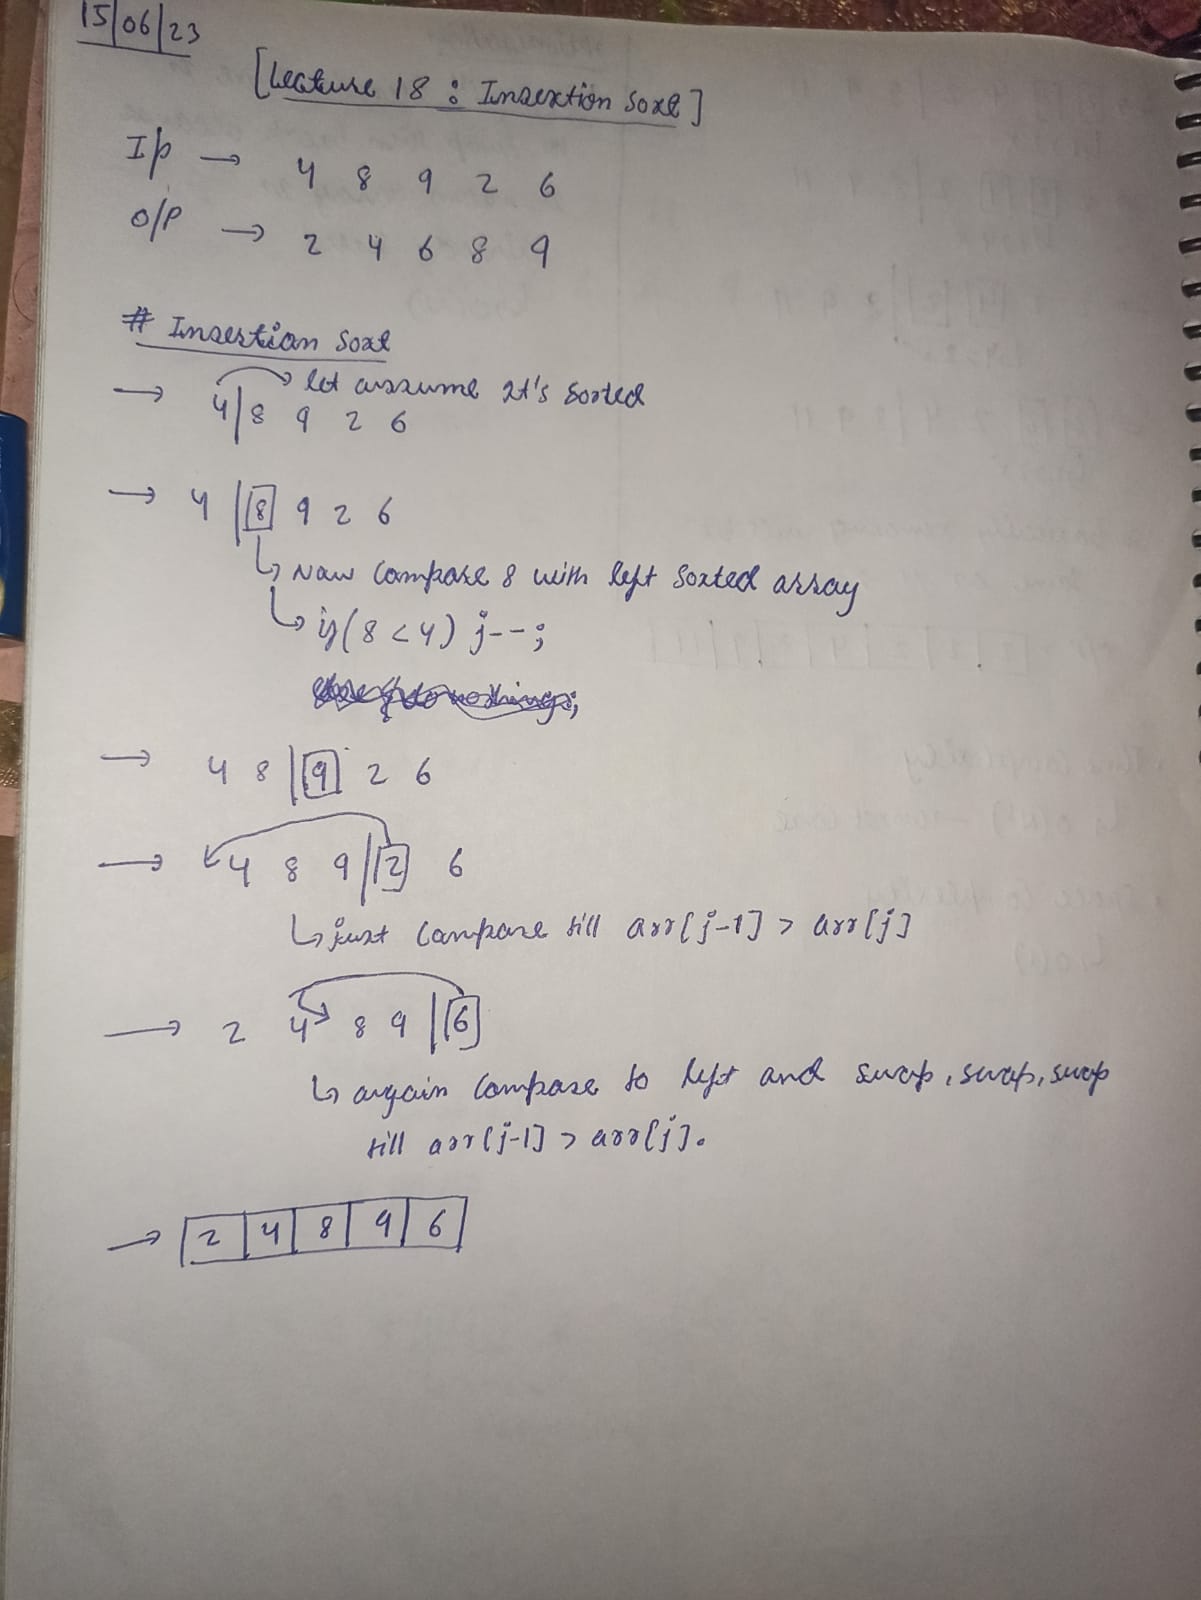 15/06/23
[Lecture 18 : Insertion Sort]
I/p → 4 8 9 2 6
O/P → 2 4 6 8 9
# Insertion Sort
→ let assume it's sorted
4 | 8 9 2 6
→ 4 | 8 9 2 6
↳ Now compare 8 with left sorted array
↳ if (8 < 4) j--;
→ 4 8 | 9 2 6
→ 4 8 9 | 2 6
↳ just compare till arr[j-1] > arr[j]
→ 2 4 8 9 | 6
↳ again compare to left and swap, swap, swap
till arr[j-1] > arr[j].
→ | 2 | 4 | 8 | 9 | 6 |